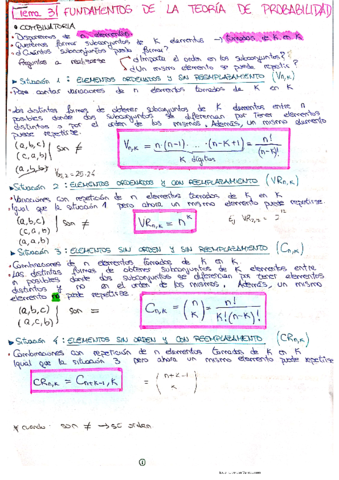 Tema 3| FUNDAMENTOS DE LA TEORÍA DE PROBABILIDAD
• COMBINATORIA
- Disponemos de n elementos
- Queremos formar subconjuntos de K elementos → tomados de K en K
- ¿Cuántos subconjuntos puedo formar?
Preguntas a realizarse
¿Importa el orden en los subconjuntos?
¿Un mismo elemento se puede repetir?
Situación 1: ELEMENTOS ORDENADOS Y SIN REEMPLAZAMIENTO (Vn,K)
- Para contar variaciones de n elementos tomados de K en K
Las distintas formas de obtener subconjuntos de K elementos entre n
posibles donde dos subconjuntos se diferencian por tener elementos
distintos o por el orden de los mismos. Además, un mismo elemento
puede repetirse.
(a,b,c)
(c,a,b)
(a,b,b)
son ≠
Vn,K = n·(n-1)· ... ·(n-K+1) = n!/(n-K)!
K dígitos
Situación 2: ELEMENTOS ORDENADOS Y CON REEMPLAZAMIENTO (VRn,K)
• Variaciones con repetición de n elementos tomados de K en K.
Igual que la situación 1 pero ahora un mismo elemento puede repetirse.
(a,b,c)
(c,a,b)
(a,a,b)
son ≠
VRn,K = n^K
Situación 3: ELEMENTOS SIN ORDEN Y SIN REEMPLAZAMIENTO (Cn,K)
• Combinaciones de n elementos tomados de K en K.
• Las distintas formas de obtener subconjuntos de K elementos entre
n posibles donde dos subconjuntos se diferencian por tener elementos
distintos y no en el orden de los mismos. Además, un mismo
elemento no puede repetirse.
(a,b,c)
(a,c,b)
son =
Cn,K = (n K) = n!/K!(n-K)!
Situación 4: ELEMENTOS SIN ORDEN Y CON REEMPLAZAMIENTO (CRn,K)
• Combinaciones con repetición de n elementos tomados de K en K
Igual que la situación 3 pero ahora un mismo elemento puede repetirse
CRn,K = Cn+K-1,K = (n+K-1 K)
cuando son ≠ → sí orden
①